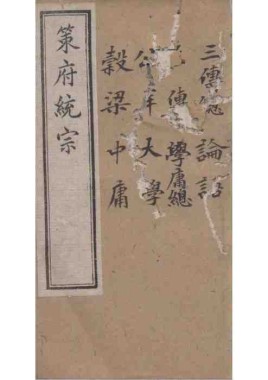 三傳總 論語
傳 學庸總
公羊 大學
穀梁 中庸
策府統宗